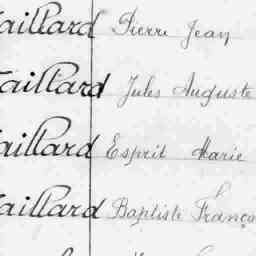 aillard Pierre Jean
aillard Jules Auguste
aillard Esprit Marie
aillard Baptiste Franço